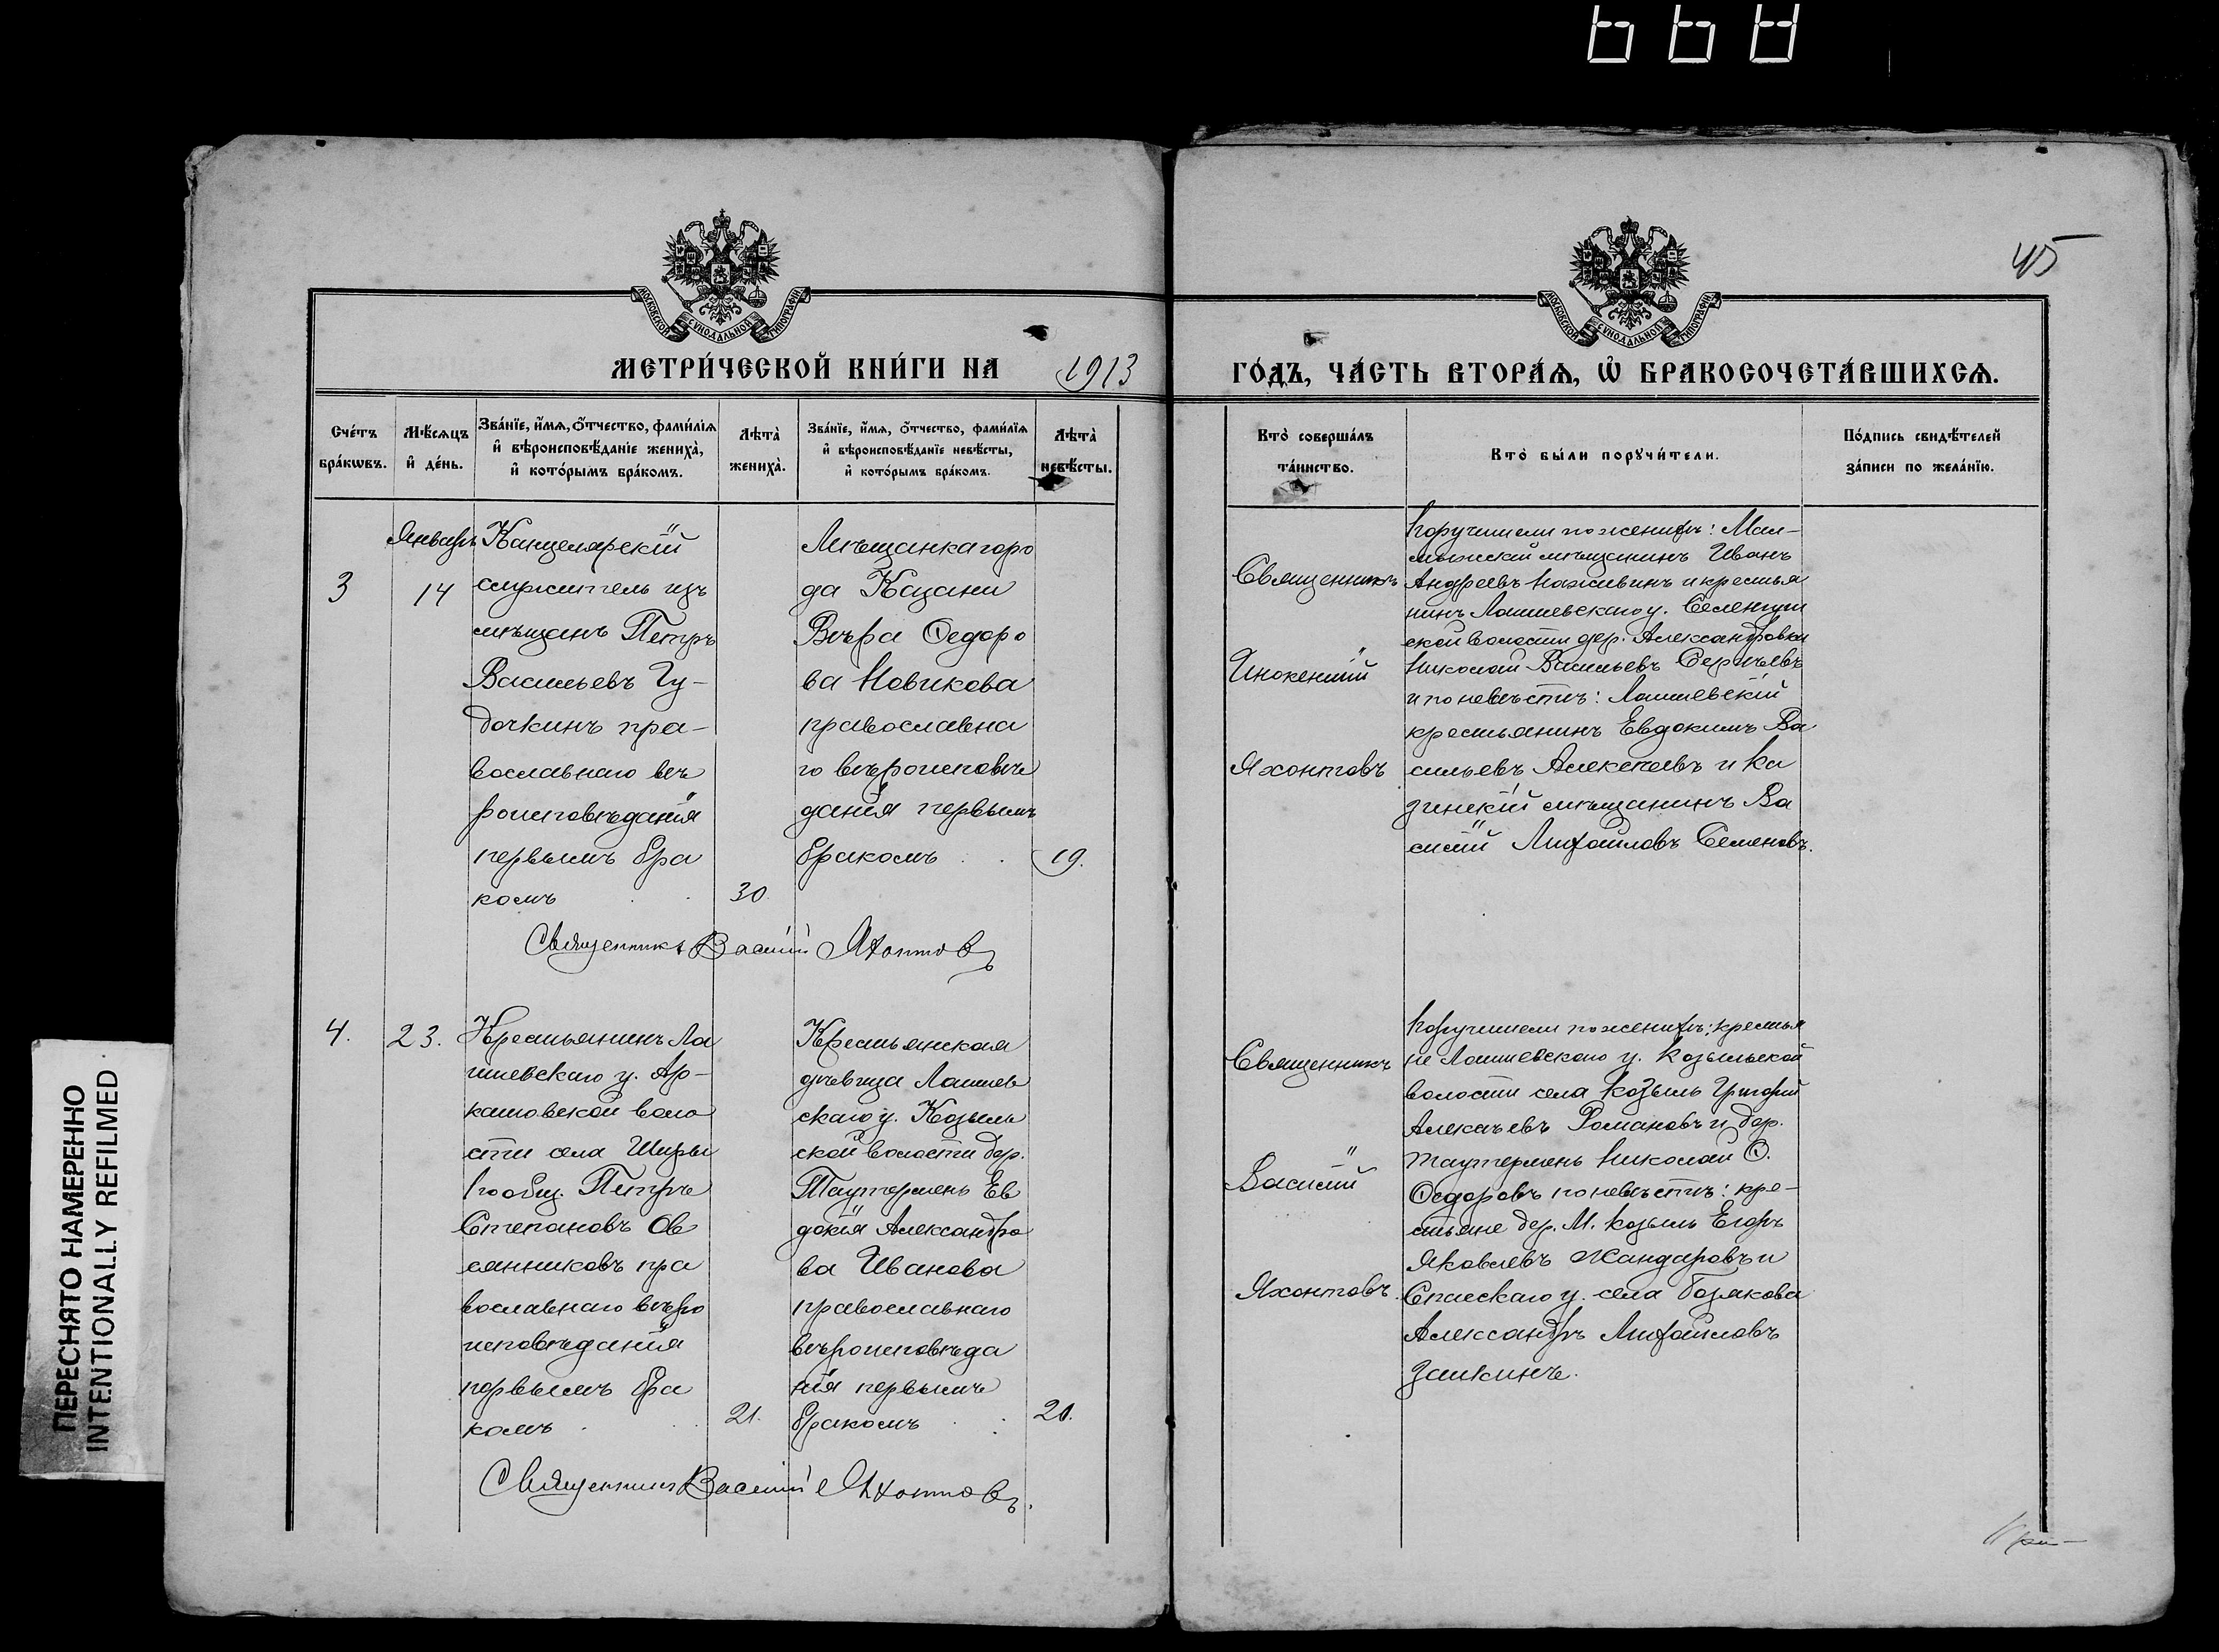 45
МОСКОВСКОЙ СѴНОДАЛЬНОЙ ТИПОГРАФІИ
МОСКОВСКОЙ СѴНОДАЛЬНОЙ ТИПОГРАФІИ
МЕТРИ́ЧЕСКОЙ КНИ́ГИ НА 1913 ГО́ДЪ, ЧА́СТЬ ВТОРА́Ѧ, Ѡ҆ БРАКОСОЧЕТА́ВШИХСѦ.
Сче́тъ бра́кѡвъ.
Мѣ́сѧцъ и҆ де́нь.
Зва́нїе, и҆́мѧ, о҆́тчество, фами́лїѧ
и҆ вѣроисповѣ́данїе жениха̀,
и҆ кото́рымъ бра́комъ.
Лѣта̀ жениха̀.
Зва́нїе, и҆́мѧ, о҆́тчество, фами́лїѧ
и҆ вѣроисповѣ́данїе невѣ́сты,
и҆ кото́рымъ бра́комъ.
Лѣта̀ невѣ́сты.
Кто̀ соверша́лъ та́инство.
Кто̀ бы́ли порꙋчи́тели.
По́дпись свидѣ́телей
за́писи по жела́нїю.
3
Январь
14
Канцелярскій
служитель изъ
мѣщанъ Петръ
Васильевъ Гу-
дочкинъ пра-
вославнаго вѣ
роисповѣданія
первымъ бра
комъ
30
Мѣщанка горо
да Казани
Вѣра Ѳедоро
ва Новикова
православна
го вѣроисповѣ
данія первымъ
бракомъ
19.
Священникъ
Инокентій
Яхонтовъ
Поручители по женихѣ: Мал-
мыжскій мѣщанинъ Иванъ
Андреевъ Наживинъ и крестья
нинъ Лаишевскаго у.
ской волости дер. Александровки
Николай Васильевъ Сергѣевъ
и по невѣстѣ: Лаишевскій
крестьянинъ Евдокимъ Ва
сильевъ Алексѣевъ и Ка
занскій мѣщанинъ Ва
силій Михайловъ Семеновъ.
Священникъ Василій Яхонтовъ
4.
23.
Крестьянинъ Ла
ишевскаго у. Ар-
катовской воло
сти села Шираны
Петръ
Степановъ Ов
сянниковъ пра
вославнаго вѣро
исповѣданія
первымъ бра
комъ
21.
Крестьянская
дѣвица Лаишев
скаго у. Козыль
ской волости дер.
Таутермень Ев
докія Александро
ва Иванова
православнаго
вѣроисповѣда
нія первымъ
бракомъ
20.
Священникъ
Василій
Яхонтовъ.
Поручители по женихѣ: крестья
не Лаишевскаго у. Козыльской
волости села Козыль Григорій
Алексѣевъ Романовъ и дер.
Таутермень Николай Ѳ.
Ѳедоровъ по невѣстѣ: кре-
стьяне дер. М. Козыль Егоръ
Яковлевъ Жандаровъ и
Спасскаго у. села Базякова
Александръ Михайловъ
Заикинъ.
Священникъ Василій Яхонтовъ.
ПЕРЕСНЯТО НАМЕРЕННО
INTENTIONALLY REFILMED